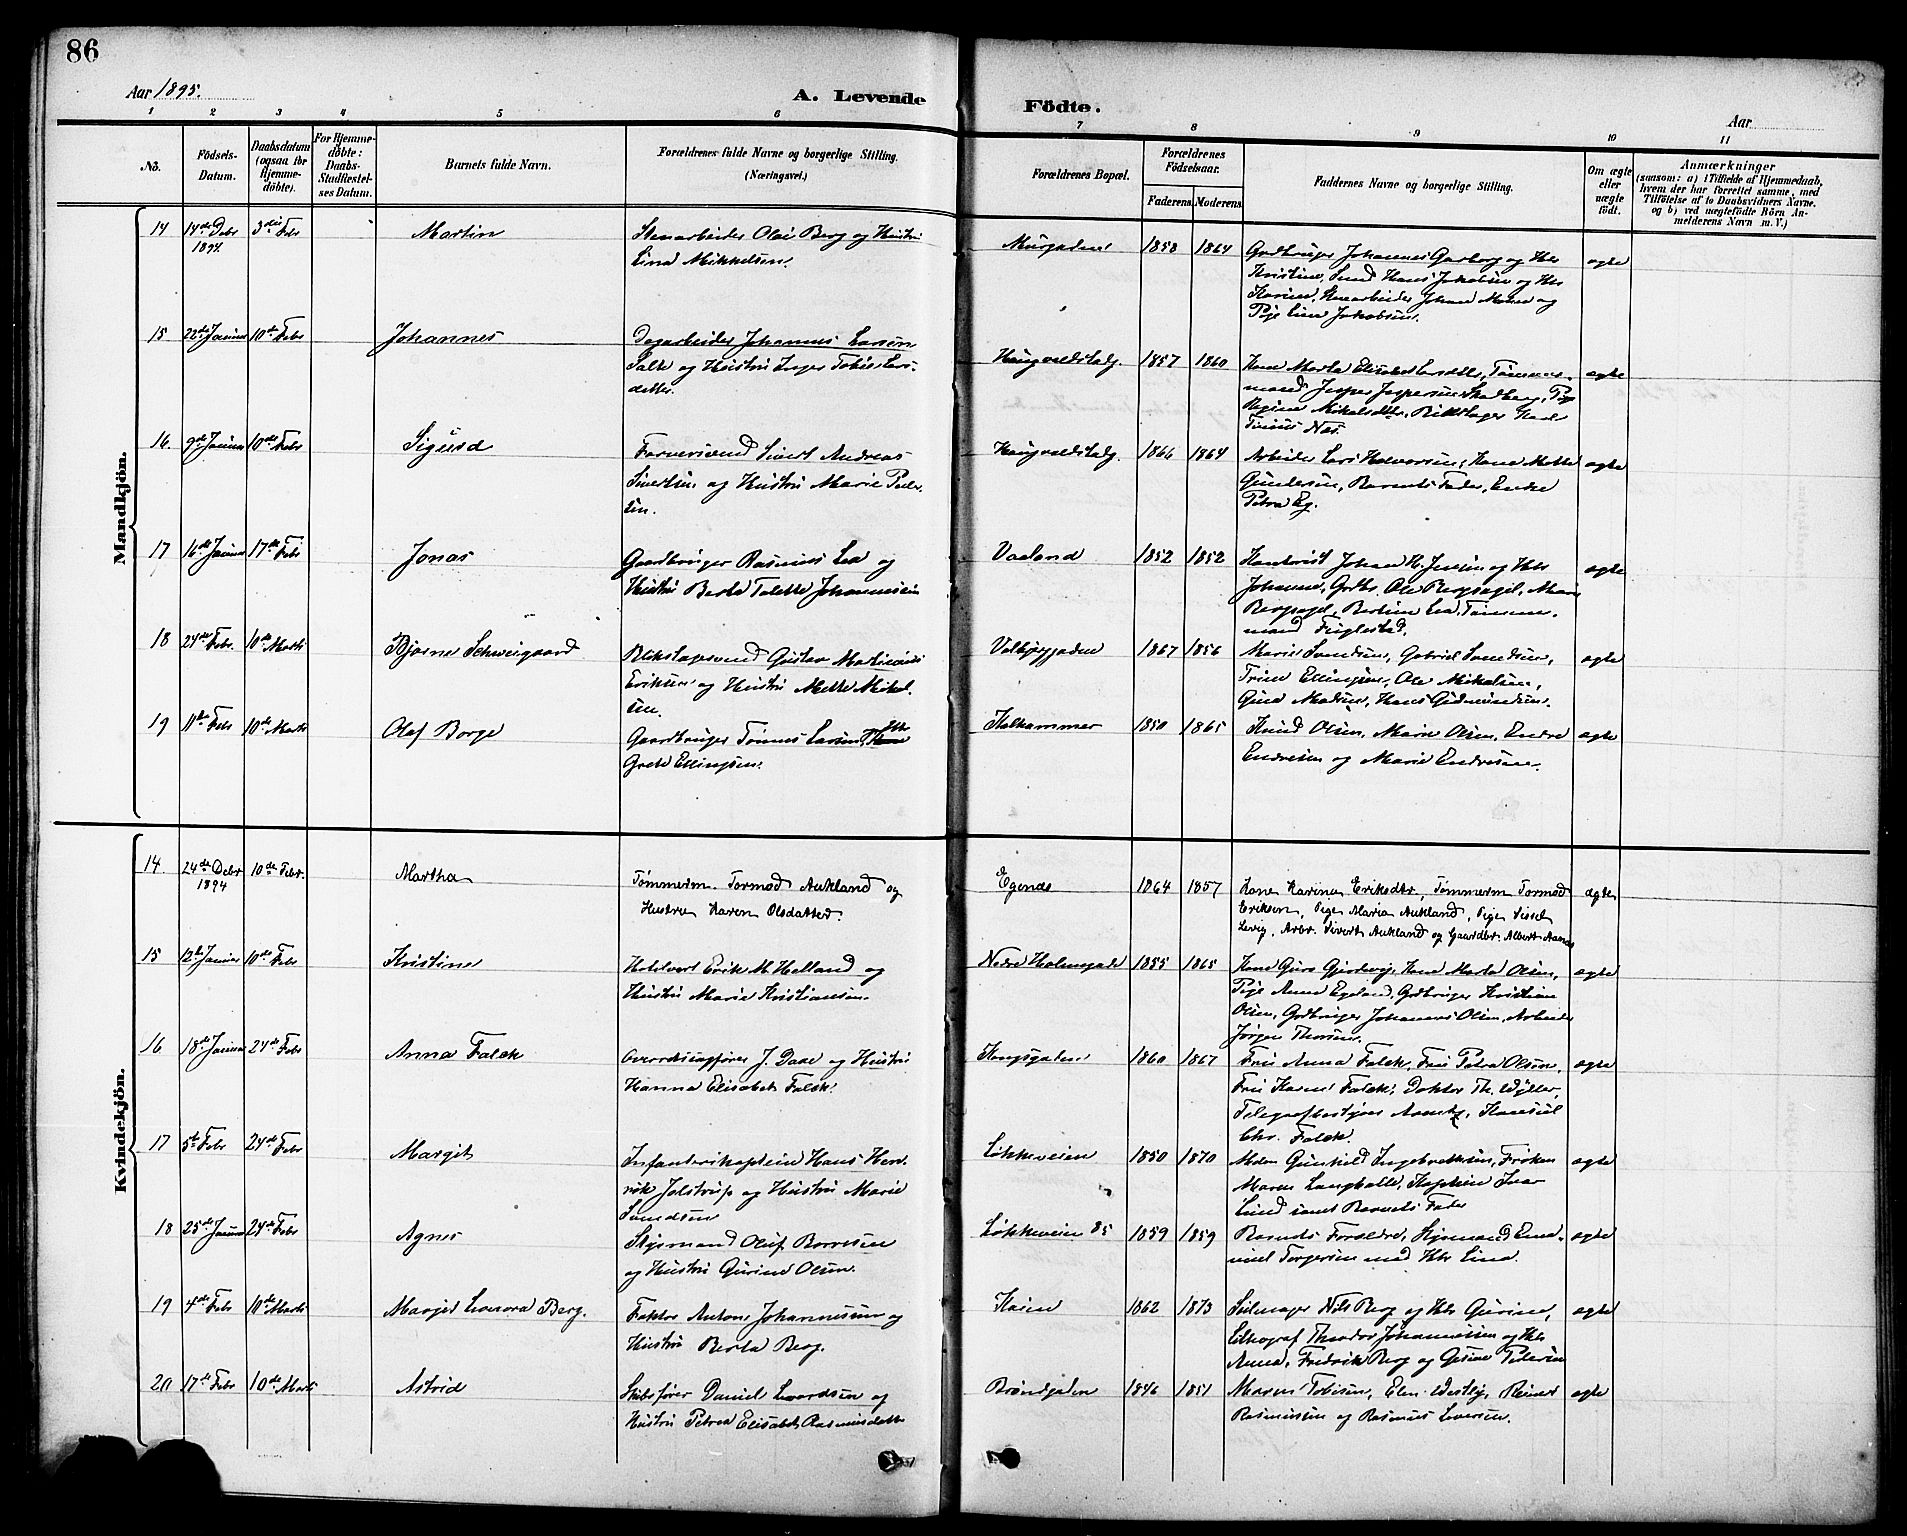 86
Aar 1895.
A. Levende Födte.
Aar
1 2 3 4 5 6 7 8 9 10 11
No.
Födsels-
Datum.
Daabsdatum
(ogsaa for
Hjemme-
döbte).
For Hjemme-
döbte:
Daabs-
Stadfæstel-
ses Datum.
Barnets fulde Navn.
Forældrenes fulde Navne og borgerlige Stilling.
(Næringsvei.)
Forældrenes Bopæl.
Forældrenes
Födselsaar.
Faderens. Moderens.
Faddernes Navne og borgerlige Stilling.
Om ægte
eller
uægte
födt.
Anmærkninger
(saasom: a) i Tilfælde af Hjemmedaab,
hvem der har forrettet samme, med
Tilföielse af to Daabsvidners Navne,
og b) ved uægtefödte Börn An-
melderens Navn m. V.)
Mandkjön.
14 14de Debr 1894 3die Febr Martin
Stenarbeider Olai Berg og Hustru
Lina Mikkelsen.
Murgaden 1858 1864
Grdbruger Johannes Garborg og Hst
Kristine, Smed Hans Jakobsen og Hst
Karine, Stenarbeider Johan Moen og
Pige Lina Jakobsen.
ægte
15 22de Januar 10de Febr Johannes
Dagarbeider Johannes Larsen
Salte og Hustru Inger Tobie Lars-
datter.
Haugvaldstadg. 1857 1860
Kone Marta Elisabet Larsdtr, Tømmer-
mand Jesper Jespersen Stadberg, Pige
Regine Mikalsdtr, Blikslager Karl
Tonius Næs.
ægte
16 9de Januar 10de Febr Sigurd
Farversvend Sivert Andreas
Sivertsen og Hustru Marie Peder-
sen.
Haugvaldstadg. 1866 1864
Arbeider Lars Halvorsen, Kone Mette
Gundersen, Barnets Fader, Enke
Petra Eg.
ægte
17 16de Januar 17de Febr Jonas
Gaardbruger Rasmus Lea og
Hustru Berta Talette Johannessen
Vaaland 1852 1852
Kontorist Johan H. Jensen og Hst
Johanne, Grdbr. Ole Bergsagel, Marie
Bergsagel, Bertine Lea, Tømmer-
mand Fuglestad.
ægte
18 24de Febr. 10de Marts Bjarne Schweigaard
Blikslagersvend Gustav Martinius
Eriksen og Hustru Mette Mikal-
sen.
Valbjerggaden 1867 1856
Marie Svendsen, Gabriel Svendsen,
Trine Ellingsen, Ole Mikalsen,
Guna Madsen, Hans Gudmundsen.
ægte
19 11te Febr 10de Marts Olaf Borge
Gaardbruger Tønnes Larsen, Hst
Grete Ellingsen.
Kalhammer 1850 1865
Knud Olsen, Marie Olsen, Endre
Endresen og Marie Endresen.
ægte
Kvindekjön.
14. 24de Debr 1894 10de Febr. Martha
Tømmerm. Tormod Aukland og
Hustru Karen Olsdatter.
Egenes 1864 1857
Kone Karina Eriksdtr, Tømmerm Tormod
Eriksen, Pige Maria Aukland, Pige Sissel
Levig, Arbr. Sivert Aukland og Gaardbr. Albert Aanes
ægte
15 12te Januar 10de Febr Kristine
Hotelvert Erik M. Helland og
Hustru Marie Kristiansen.
Nedre Holmegade 1855 1865
Kone Guro Gjedrevig, Kone Marta Olsen,
Pige Anna Egeland, Grdbruger Kristian
Olsen, Grdbruger Johannes Olsen, Arbeider
Jørgen Thorsen.
ægte
16 18de Januar 24de Febr Anna Falck
Overretssagfører J. Daae og Hustru
Hanna Elisabet Falck.
Kongsgaden 1860 1867
Fru Anna Falck, Fru Petra Olsen,
Fru Karen Falck, Doktor Th. Wyller,
Telegrafbestyrer Aanetz, Konsul
Chr. Falck.
ægte
17 5te Febr 24de Febr Margit
Infanterikaptein Hans Hen-
rik Jelstrup og Hustru Marie
Svendsen
Løkkeveien 1850 1870
Mdm Gunhild Ingebretsen, Frøken
Maren Langballe, Kaptein Ivar
Lund samt Barnets Fader
ægte
18 25de Januar 24de Febr Agnes
Styrmand Oluf Borresen
og Hustru Gurine Olsen.
Løkkeveien 85 1859 1859
Barnets Forældre, Styrmand Ema-
nuel Torgersen med Hst Lina.
ægte
19 4de Febr 10de Marts Margit Leonora Berg.
Faktor Anton Johannesen og
Husttru Berta Berg.
Kaien 1862 1873
Seilmager Nils Berg og Hst Gurine,
Lithograf Theodor Johannessen og Hst
Anna, Fredrik Berg og Gesine Pedersen
ægte
20 17de Febr 10de Marts Astrid
Skibsfører Daniel Levordsen og
Hustru Petrea Elisabet Rasmusdatter
Brøndgaden 1846 1851
Maren Tobisen, Elen Westby, Reinert
Rasmussen og Rasmus Leversen.
ægte